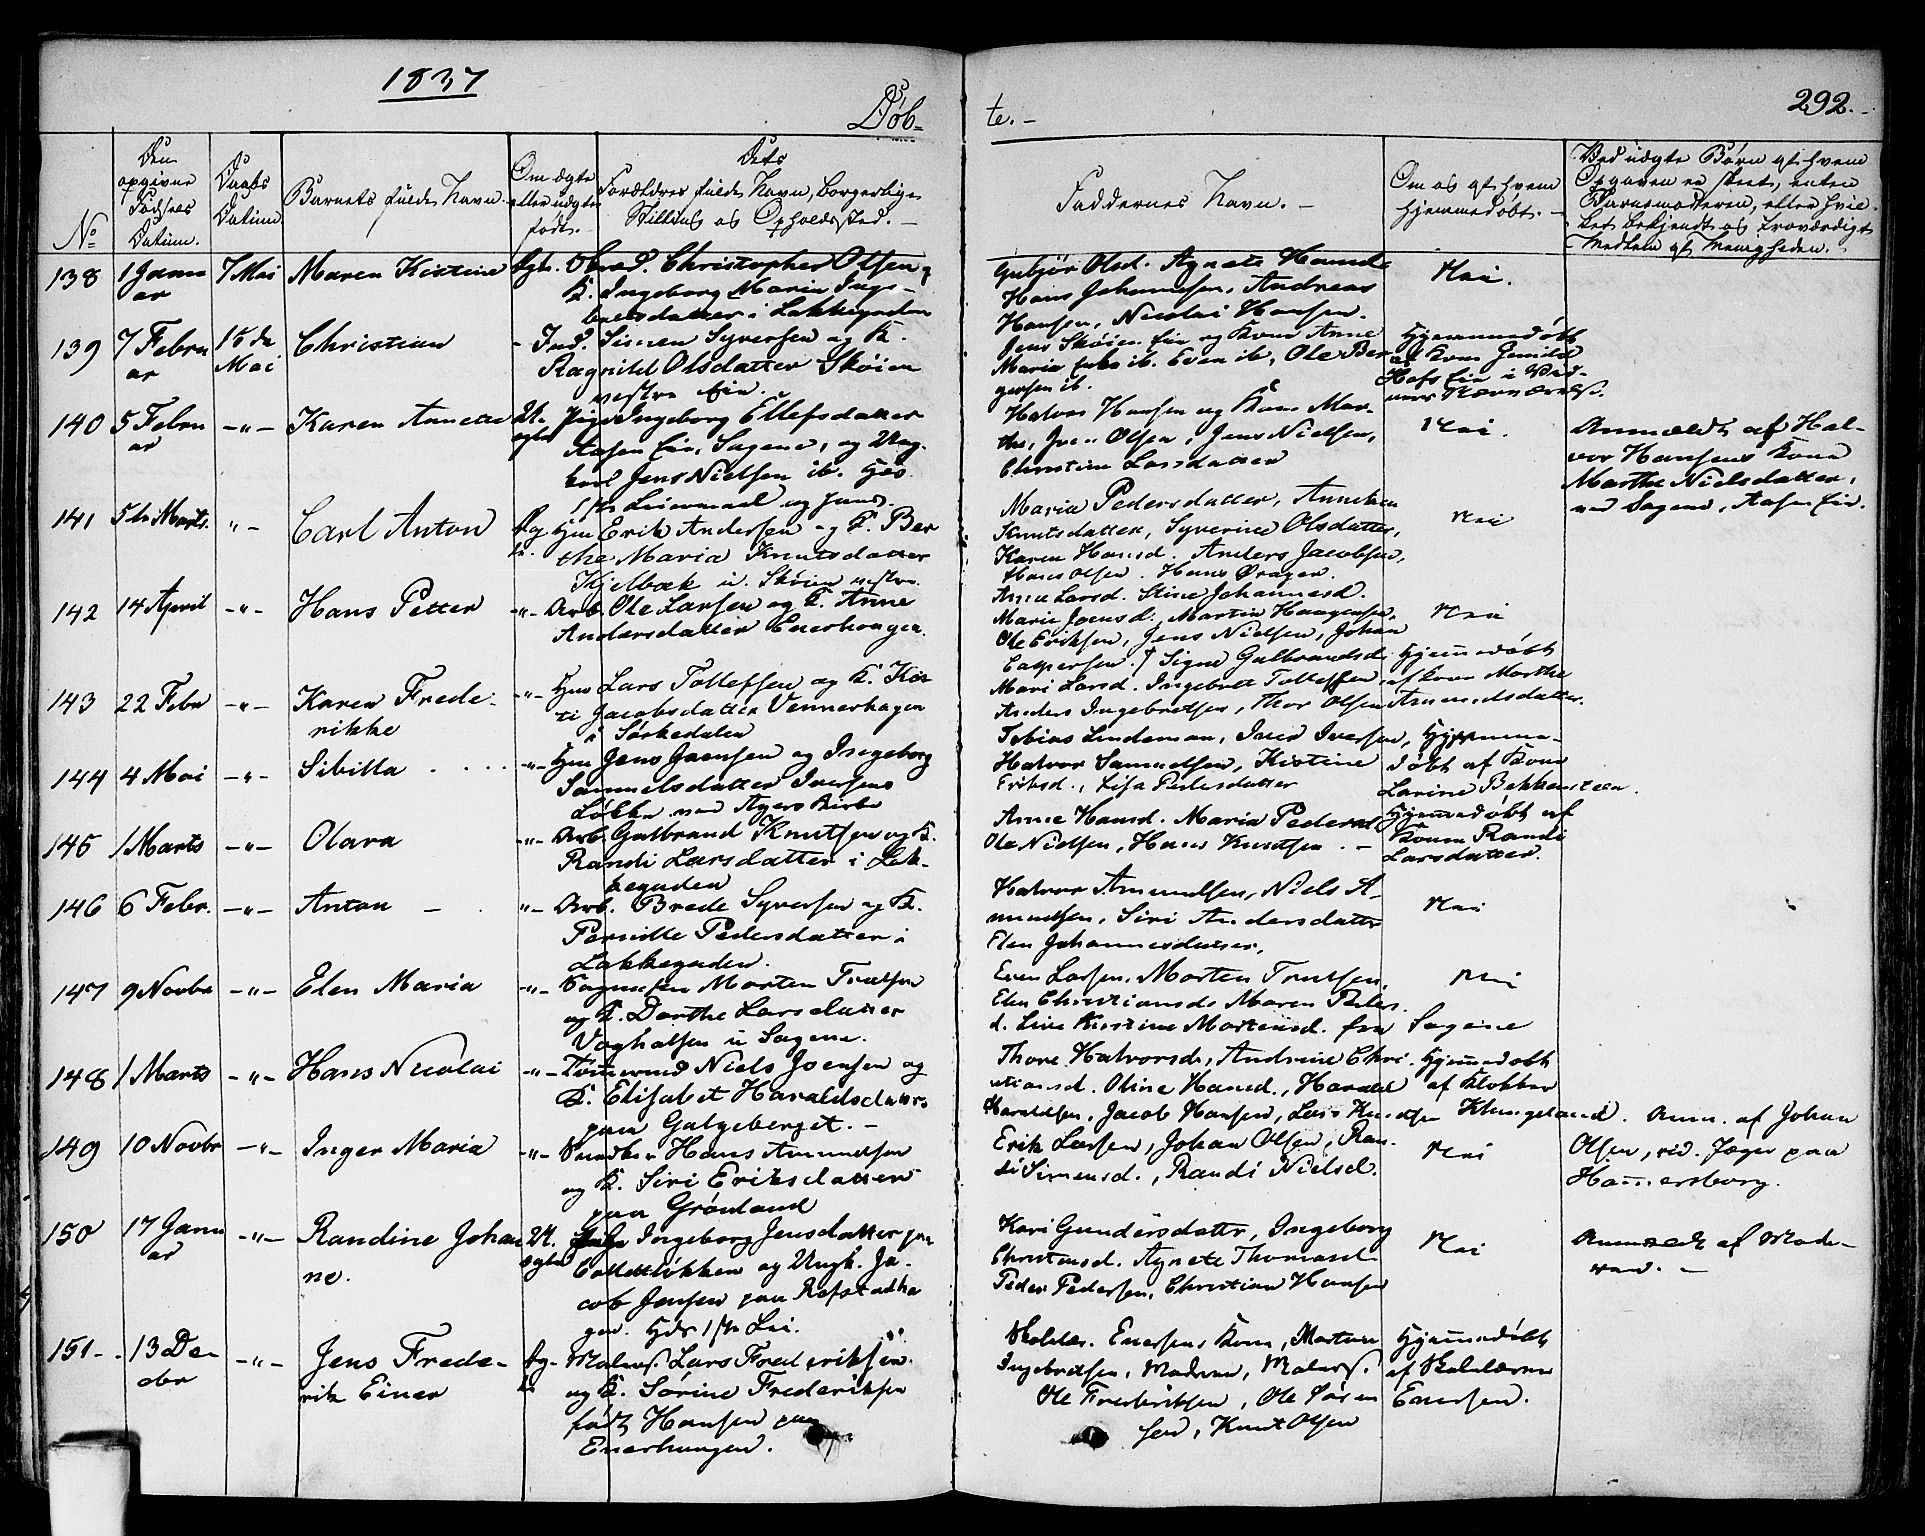 1837
Døb-
te. -
292. -
No
Den opgivne Fødsels Datum.
Daabs Datum
Barnets fulde Navn.
Om ægte eller uægte født. -
Dets Forældres fulde Navn, borgerlige Stilling og Opholdssted. -
Faddernes Navn. -
Om og af hvem hjemmedøbt. -
Ved uægte Børn af hvem Opgaven er skeet, enten Barnemoderen, eller hvilket bekjendt og troværdigt Medlem af Menigheden. -
138 1 Januar 7 Mai Maren Kistine
Christopher Olsen
K. Ingeborg Maria Inge-
bretsdatter i Lakkegaden
Olsd. Agnete Hansd.
Hans Johannesen, Andreas
Hansen, Nicolai Hansen.
Nei.
139 7 Februar 15de Mai Christian
- Ind. Simen Syversen og K.
Ragnild Olsdatter Skøien
vestre Eie.
Jens Skøien Eie og Kone Anne
Maria ib. Even ib, Ole Ber
gersen ib.
Hjemmedøbt
af Kone Gunild
Hofs Eie i
140 5 Februar -"- Karen Annette
U. ægte Pige Ingeborg Ellefsdatter
Aasen Eie, Sagene, og Ung-
karl Jens Nielsen ib. Hds
1ste Leiermaal og hans.
Halvor Hansen og Kone Mar-
the, Olsen, Jens Nielsen,
Christine Larsdatter
Nei.
Anmeldt af Hal-
vor Hansens Kone
Marthe Nielsdatter,
ved Sagene, Aasen Eie.
141 5te Marts. "- Carl Anton
Erik Andersen og K. Ber
the Maria Knutsdatter
Kjelbæk u. Skøien vestre.
Maria Pedersdatter, Anneken
Knutsdatter, Syverine Olsdatter,
Karen Hansd. Anders Jacobsen,
Hans Olsen. Hans Øragen.
Nei
142 14 April -"- Hans Petter
-"- Arb. Ole Larsen og K. Anne
Andersdatter Enerhaugen.
Anne Larsd. Stine Johannesd.
Marie Joensd. Martin Haagensen,
Ole Eriksen, Jens Nielsen, Johan
Caspersen.
Nei
143 22 Febr -"- Karen Frede-
rikke
-"- Hm Lars Tollefsen og K. Kir
ti Jacobsdatter Vennerhagen
i Sørkedalen
Signe Gulbrandsd.
Mari Larsd. Ingebret Tollefsen
Anders Ingebretsen, Thor Olsen
Hjemmedøbt
af Kone Marthe
Amundsdatter.
144 4 Mai -"- Sibilla
-"- Hm Jens Joensen og Ingeborg
Samuelsdatter Iversens
Løkke ved Agers Kirke
Tobias Lindeman, Iver Iversen,
Halvor Samuelsen, Kistine
Eriksd., Lisa Pedersdatter
Hjemme-
døbt af Kone
Larine Bekkensteen.
145 1 Marts -"- Olava
-"- Arb. Gulbrand Knutsen og K.
Randi Larsdatter i Lak-
kegaden
Anne Hansd. Maria Pedersd.
Ole Nielsen, Hans Knutsen. -
Hjemmedøbt af
Konen Randi
Larsdatter.
146 6 Febr. -"- Anton -
"- Arb. Brede Syversen og K.
Pernille Pedersdatter i
Lakkegaden.
Halvor Amundsen, Niels A-
mundsen, Siri Andersdatter
Elen Johannesdatter,
Nei
147 9 Novbr -"- Elen Maria
-"- Morten Truelsen
og K. Dorthe Larsdatter
Voghalsen u Sagene.
Even Larsen, Morten Trulsen,
Elen Christiansd. Maren Peders
d. Line Kirstine Mortensd. fra Sagene
Nei
148 1 Marts -"- Hans Nicolai
-"- Tømmermd Niels Joensen og
K. Elisabet Haraldsdatter
paa Galgeberget. -
Thore Halvorsd., Andrine Chri-
stiansd. Oline Hansd., Harald
Haraldsen, Jacob Hansen, Lars Knudsen
Hjemmedøbt
af Klokker
Klungeland.
149 10 Novbr -"- Inger Maria
-"- Hans Amundsen
og K. Siri Eriksdatter
paa Grønland
Erik Larsen, Johan Olsen, Ran-
di Simensd., Randi Nielsd.
Nei
Anm. af Johan
Olsen, rid. Jæger paa
Hammersborg.
150 17 Januar -"- Randine Johan
ne.
U. ægte Ingeborg Jensdatter paa
Collettløkken og Ungk. Ja-
cob Jensen paa Refstadha
gen. Hds 1ste Lei.
Kari Gundersdatter, Ingeborg
Christensd. Agnete Thomasd.
Peder Pedersen, Christian Hansen
Nei
Anmeldt af Mode-
ren. -
151 - 13 De-
cbr -"- Jens Frede-
rik Einer
Æg-
te Malersv. Lars Frederiksen
og K. Sørine Frederiksen
født Hansen paa
Enerhaugen.
Skolelær. Enersens Kone, Morten
Ingebretsen, Malersv.
Ole Frederiksen, Ole Peder
sen, Knut Olsen
Hjemmedøbt
af Skolelærer
Enersen.